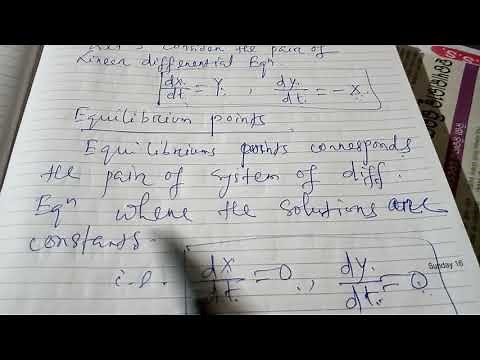 Let's Consider the pair of
Linear differential Eqn.
dx/dt = y, dy/dt = -x.
Equilibrium points
Equilibriums points corresponds
the pair of system of diff.
Eqn where the solutions are
constants.
i.e. dx/dt = 0, dy/dt = 0
Sunday 16
S.S.